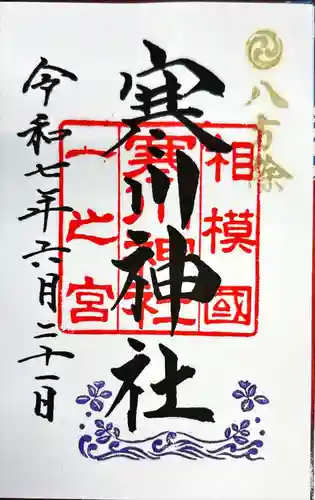 八方除
寒川神社
相模國
寒川神社
一之宮
令和七年六月二十一日